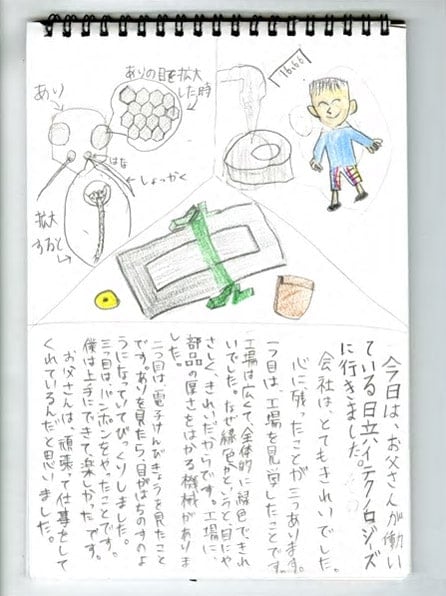 ありの目を拡大
した時
あり
はな
しょっかく
拡大
すると
16.66
今日は、お父さんが働い
ている日立ハイテクノロジーズ
に行きました。
会社は、とてもきれいでした。
心に残ったことが三つあります。
一つ目は、工場を見学したことです。
工場は広くて、全体的に緑色できれ
いでした。なぜ緑色かというと目にや
さしく、きれいだからです。工場に、
部品の厚さをはかる機械がありま
した。
二つ目は電子けんびきょうを見たこと
です。ありを見たら、目がはちのすのよ
うになっていてびっくりしました。
三つ目は、をやったことです。
僕は上手にできて楽しかったです。
お父さんは、頑張って仕事をして
くれているんだと思いました。